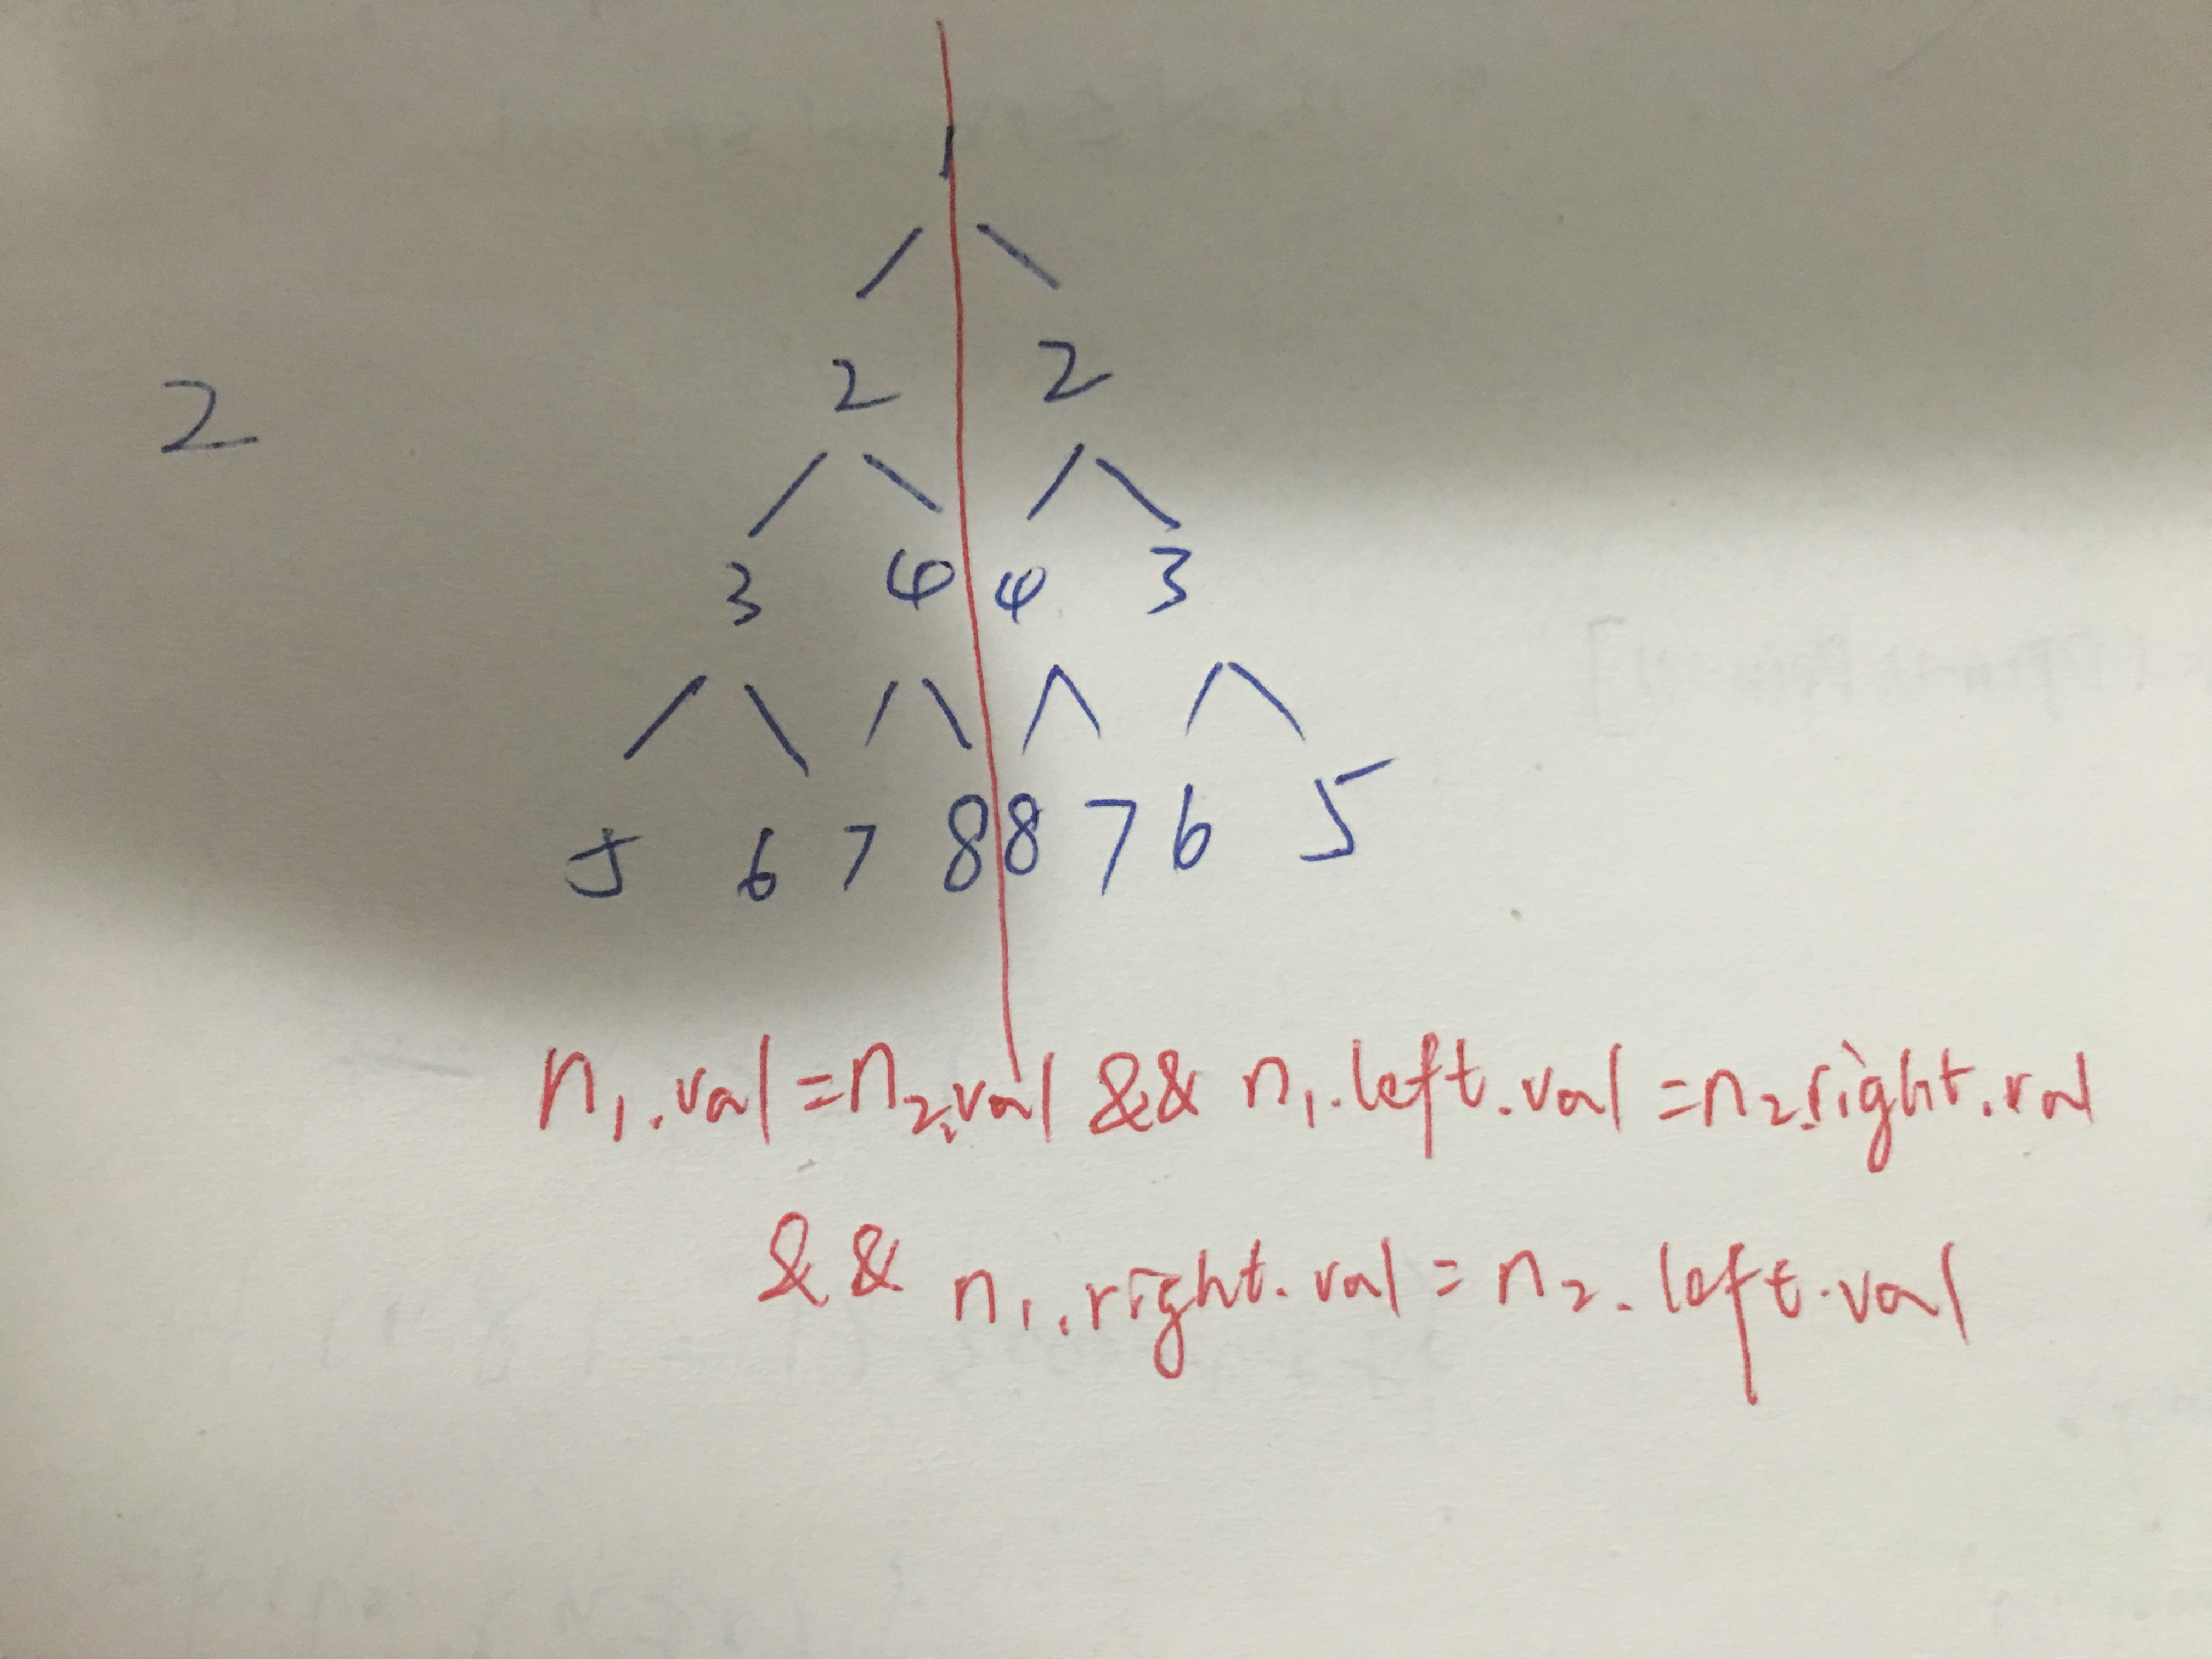 2
1
2 2
3 4 4 3
5 6 7 8 8 7 6 5
n1.val = n2.val && n1.left.val = n2.right.val
&& n1.right.val = n2.left.val